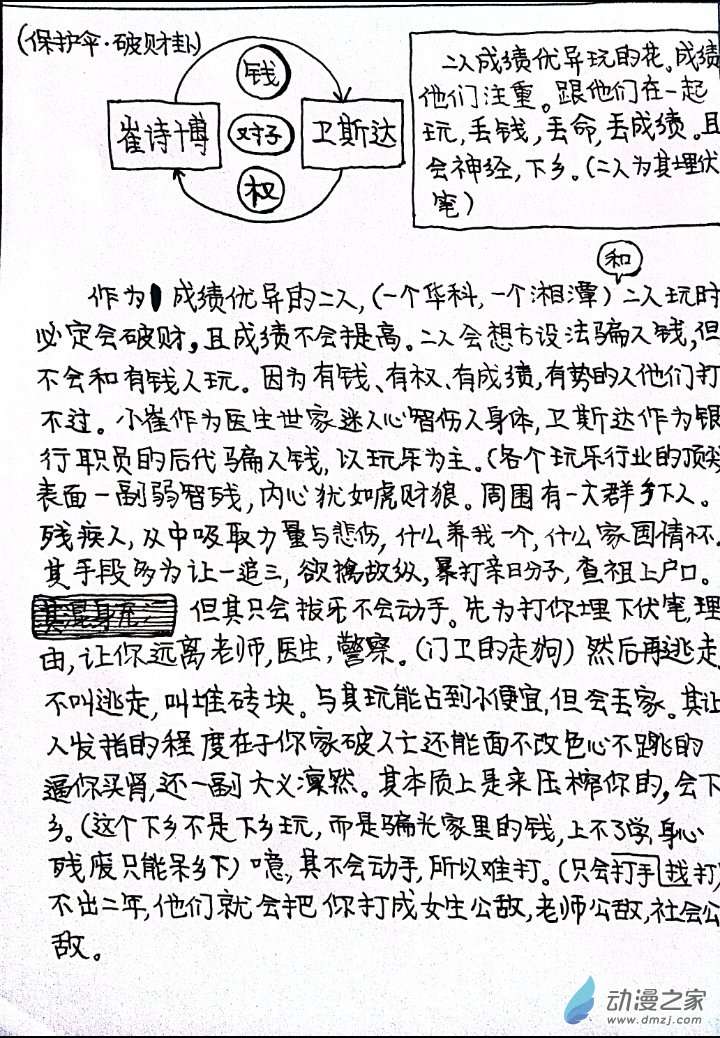 (保护伞·破财卦)
钱
崔诗博
对子
卫斯达
权
二人成绩优异玩的花。成绩
他们注重。跟他们在一起
玩,丢钱,丢命,丢成绩。且
会神经,下乡。(二人为其埋伏
笔)
和
作为 成绩优异的二人,(一个华科,一个湘潭)二人玩时
必定会破财,且成绩不会提高。二人会想方设法骗人钱,但
不会和有钱人玩。因为有钱、有权、有成绩,有势的人他们打
不过。小崔作为医生世家迷人心智伤人身体,卫斯达作为银
行职员的后代骗人钱,以玩乐为主。(各个玩乐行业的顶尖
表面一副弱智残,内心犹如虎财狼。周围有一大群乡下人。
残疾人,从中吸取力量与悲伤,什么养我一个,什么家国情怀。
其手段多为让一追三,欲擒故纵,暴打亲日分子,查祖上户口。
但其只会拔牙不会动手。先为打你埋下伏笔,理
由,让你远离老师,医生,警察。(门卫的走狗)然后再逃走,
不叫逃走,叫堆砖块。与其玩能占到小便宜,但会丢家。其让
人发指的程度在于你家破人亡还能面不改色心不跳的
逼你买肾,还一副大义凛然。其本质上是来压榨你的,会下
乡。(这个下乡不是下乡玩,而是骗光家里的钱,上不了学,身心
残废只能呆乡下)噫,其不会动手,所以难打。(只会打手找打)
不出二年,他们就会把你打成女生公敌,老师公敌,社会公
敌。
动漫之家
www.dmzj.com